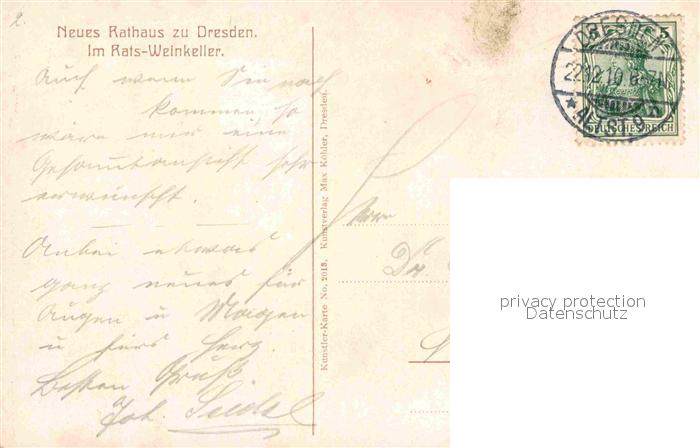 2.
Neues Rathaus zu Dresden.
Im Rats-Weinkeller.
Auch wenn Sie nach
kommen so
wäre mir eine
Gesamtansicht sehr
erwünscht.
Anbei etwas
ganz neues für
Augen u Magen
u fürs Herz.
Besten Gruß
Joh. Seidel
Künstler-Karte No. 2013. Kunstverlag Max Köhler, Dresden.
DRESDEN
22.12.10
ALTST. 9
5
DEUTSCHES REICH
Herrn
Dr.
privacy protection
Datenschutz